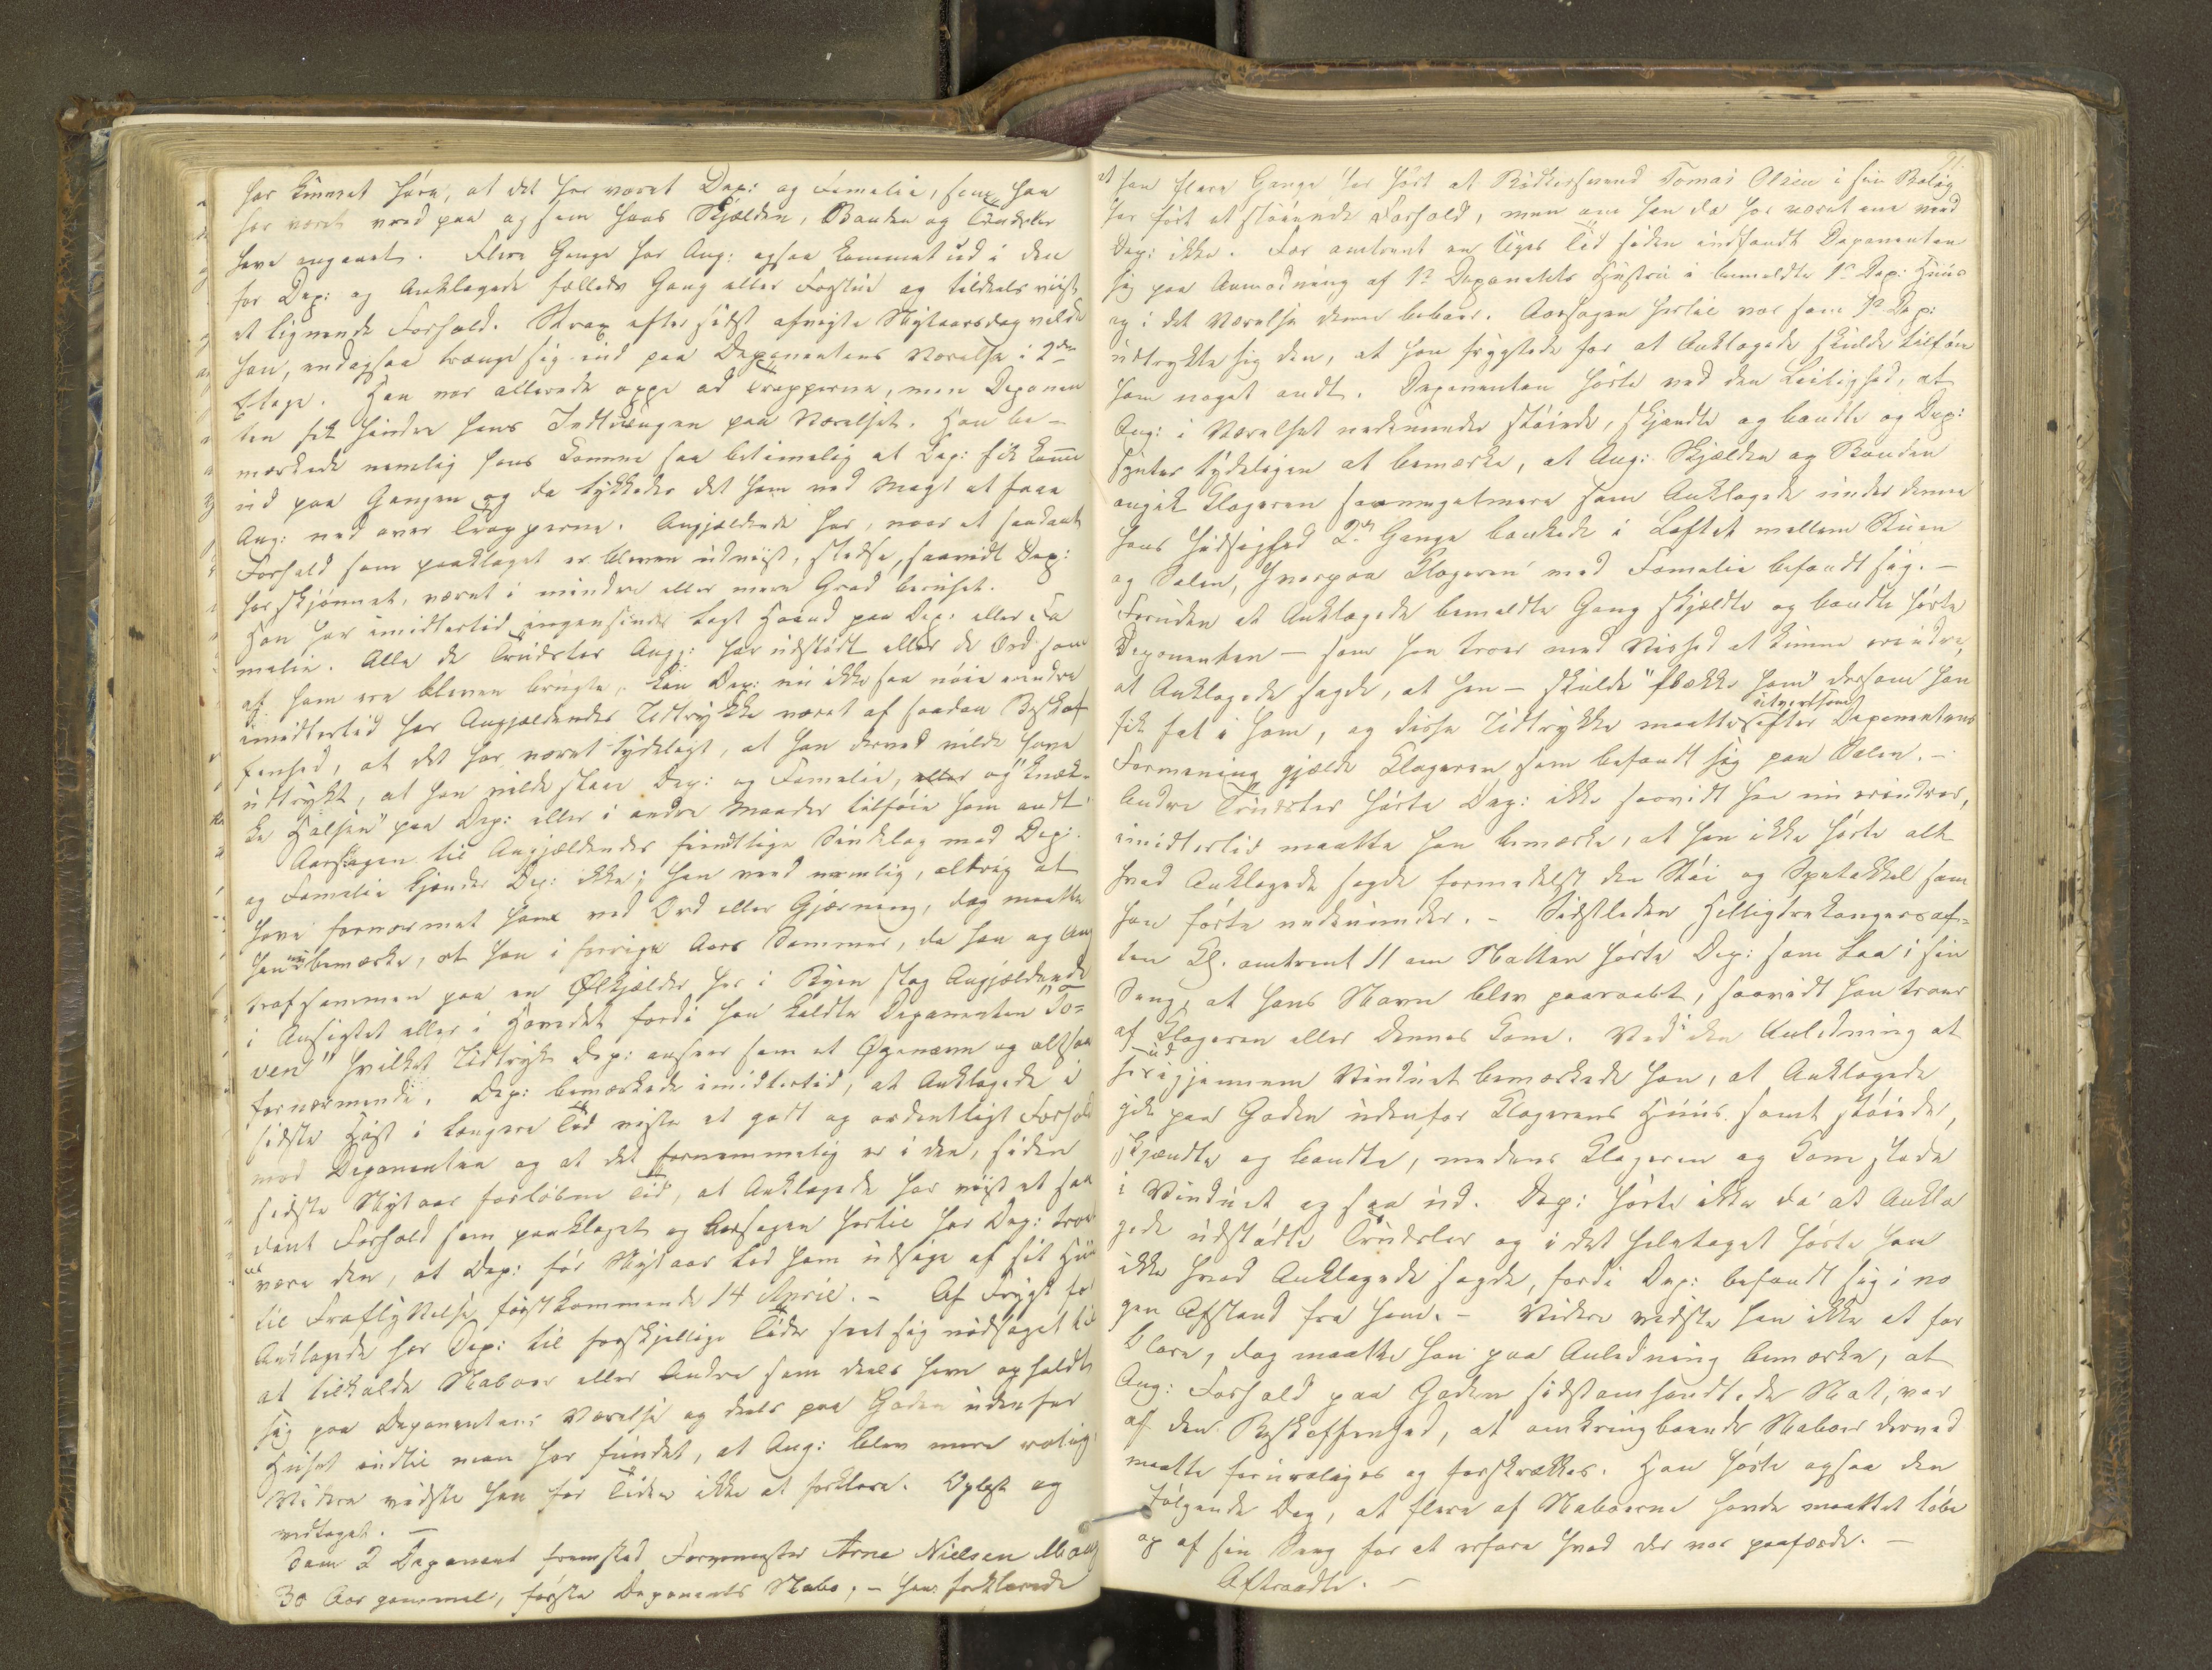 har kunnet høre, at det har været Dep: og Familie, som han
har været vred paa og som hans Skjælden, Banden og Trudsler
have angaaet. Flere Gange har Ang: ogsaa kommet ud i den
for Dep: og Anklagede fælleds Gang eller Forstue og tildeels viist
et lignende Forhold. Strax efter sidst afvigte Nytaarsdag vilde
han, endogsaa trænge sig ind paa Deponentens Værelse i 2den
Etage. Han var allerede oppe ad Trapperne, men Deponen
ten fik hindre hans Indtrængen paa Værelset. Han be-
mærkede nemlig hans Komme saa betimelig at Dep: fik komme
ud paa Gangen og da lykkedes det ham med Magt at faae
Ang: ned over Trapperne. Angjældende har, naar et saadant
Forhold som paaklaget er bleven udviist, stedse, saavidt Dep:
har skjønnet, været i mindre eller mere Grad beruset.
Han har imidlertid ingensinde lagt Haand paa Dep: eller Fa
milie. Alle de Trudsler Angj: har udstødt eller de Ord som
af ham ere blevne brugte, kan Dep: nu ikke saa nøie erindre
imidlertid har Angjældendes Udtrykke været af saadan Beskaf
fenhed, at det har været tydeligt, at han derved vilde have
udtrykt, at han vilde slaae Dep: og Familie, eller og "knæk-
ke Halsen" paa Dep: eller i andre Maader tilføie ham ondt
Aarsagen til Angjældendes fiendtlige Sindelag mod Dep:
og Familie kjender Dep: ikke; han veed nemlig, aldrig at
have fornærmet ham ved Ord eller Gjerning, dog maatte
han bemærke, at han i forrige Aars Sommer, da han og Ang
traf sammen paa en Ølkjælder her i Byen slog Angjældende
i Ansigtet eller i Hovedet fordi han kaldte Deponenten "To=
ven" hvilket Udtryk Dep: ansaae som et Øgenavn og altsaa
fornærmende. Dep: bemærkede imidlertid, at Anklagede i
sidste Høst i længere Tid viste et godt og ordentligt Forhold
mod Deponenten og at det fornemmelig er i den, siden
sidste Nytaar forløbne Tid, at Anklagede har viist et saa
dant Forhold som paaklaget og Aarsagen hertil har Dep: troet
være den, at Dep: før Nytaar lod ham udsige af sit Huus
til Fraflyttelse førstkommende 14 April. - Af Frygt for
Anklagede har Dep: til forskjellige Tider seet sig nødsaget til
at tilkalde Naboer eller Andre som deels have opholdt
sig paa Deponentens Værelse og deels paa Gaden udenfor
Huset indtil man har fundet, at Ang: blev mere rolig
Videre vidste han for Tiden ikke at forklare. Oplæst og
vedtaget. -
Som 2 Deponent fremstod Farvermester Arne Nielsen
30 Aar gammel, første Deponents Nabo, - han forklarede
91.
at han flere Gange har hørt at Bødkersvend Tomas Olsen i sin Bolig
har ført et støiende Forhold, men om han da har været ene veed
Dep: ikke. For omtrent en Uges Tid siden indfandt Deponenten
sig paa Anmodning af 1ste Deponents Hustru i bemeldte 1ste Dep: Huus
og i det Værelse denne beboer. Aarsagen hertil var som 1ste Dep:
udtrykte sig den, at han frygtede for at Anklagede skulde tilføie
ham noget ondt. Deponenten hørte ved den Leilighed, at
Ang: i Værelset nedenunder støiede, skjændte og bandte og Dep:
syntes tydeligen at bemærke, at Ang: Skjælden og Banden
angik Klageren saameget mere som Anklagede under denne
hans Hidsighed 2de Gange bankede i Loftet mellem Stuen
og Salen, hvorpaa Klageren med Familie befandt sig. -
Foruden at Anklagede bemeldte Gang skjældte og bandte hørte
Deponenten - som han troer med Vished at kunne erindre,
at Anklagede sagde, at han - skulde "flække ham" dersom han
fik fat i ham, og disse Udtrykke maatte utvivlsomt efter Deponentens
Formening gjælde Klageren som befandt sig paa Salen. -
Andre Trudsler hørte Dep: ikke saavidt han nu erindrer,
imidlertid maatte han bemærke, at han ikke hørte alt
hvad Anklagede sagde formedelst den Støi og Spetakkel som
han førte nedenunder. - Sidstleden Helligtrekongersaf=
ten Kl. omtrent 11 om Natten hørte Dep: som laa i sin
Seng, at hans Navn blev paaraabt, saavidt han troer
af Klageren eller dennes Kone. Ved i den Anledning at
see ud igjennem Vinduet bemærkede han, at Anklagede
gik paa Gaden udenfor Klagerens Huus samt støiede,
skjændte og bandte, medens Klageren og Kone stode
i Vinduet og saa ud. Dep: hørte ikke da at Ankla
gede udstødte Trudsler og i det heletaget hørte han
ikke hvad Anklagede sagde, fordi Dep: befandt sig i no
gen Afstand fra ham. - Videre vidste han ikke at for
klare, dog maatte han paa Anledning bemærke, at
Ang: Forhold paa Gaden sidstomhandlede Nat, var
af den Beskaffenhed, at omkringboende Naboer derved
maatte foruroliges og forskrækkes. Han hørte ogsaa den
følgende Dag, at flere af Naboerne havde maattet løbe
op af sin Seng for at erfare hvad der var paafærde. -
Aftraadte. -